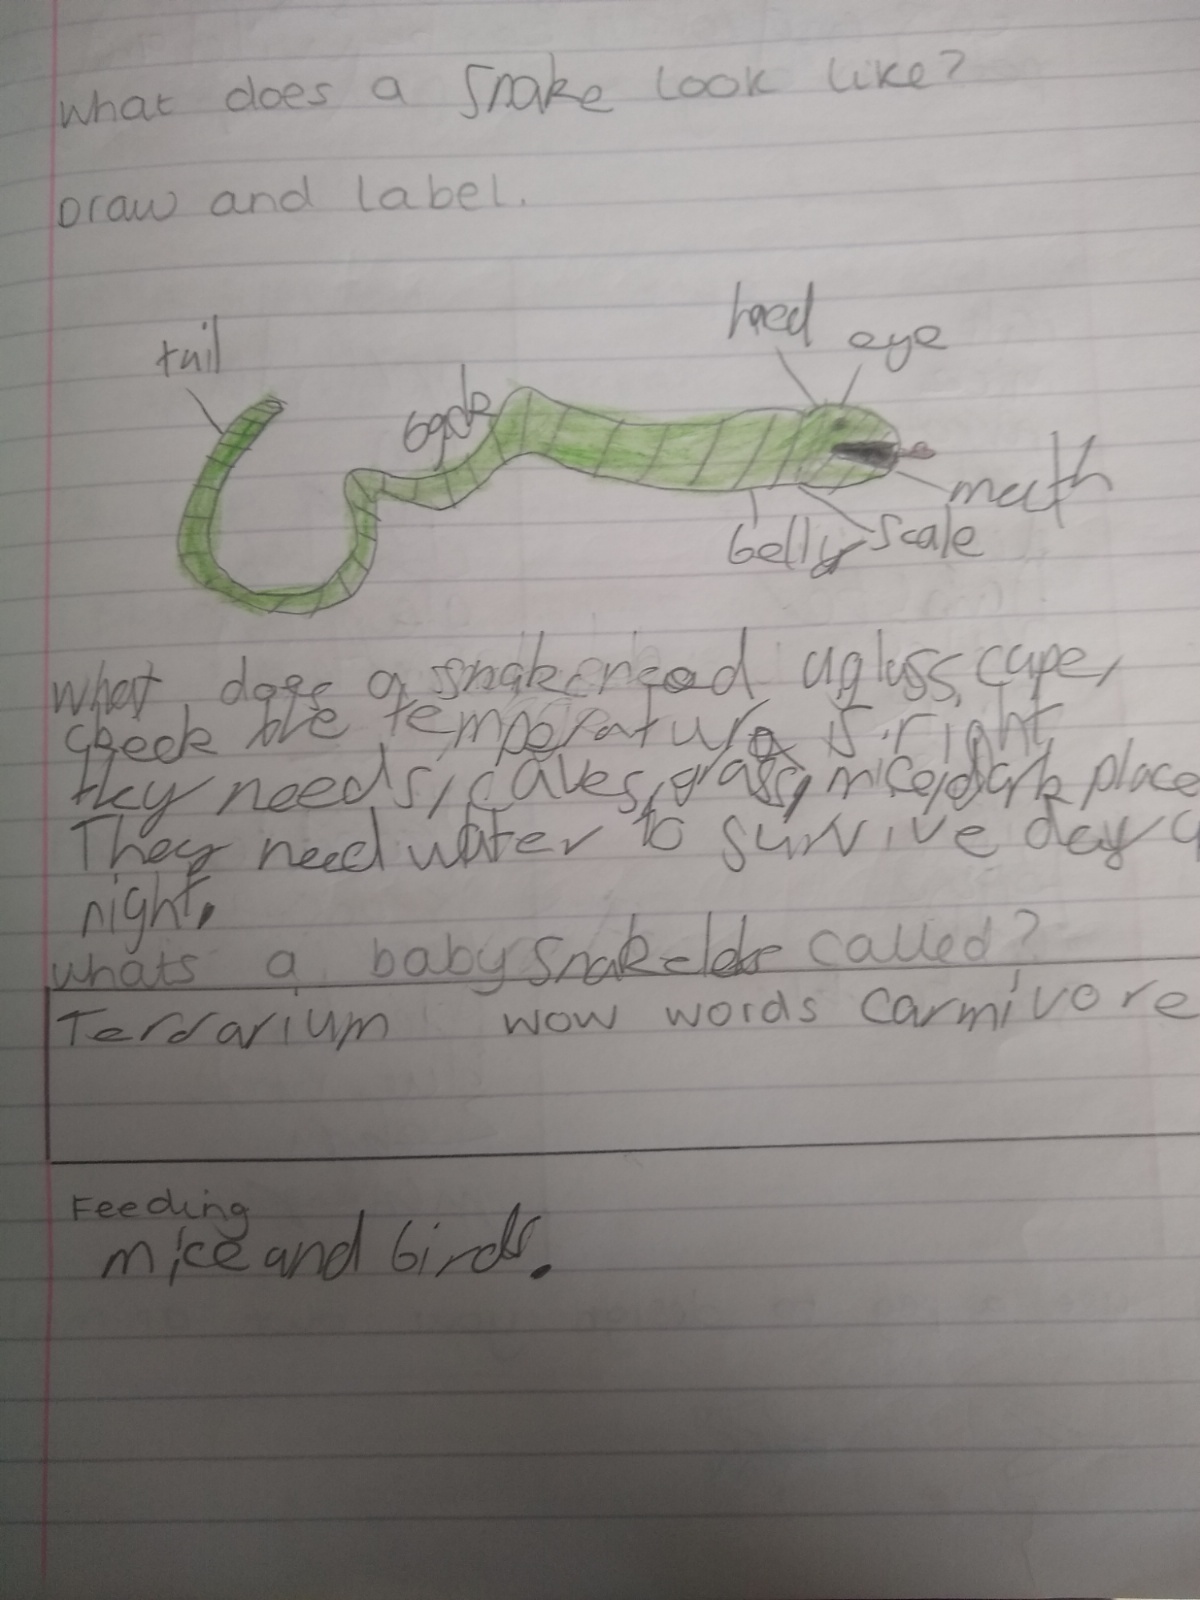 What does a Snake look like?
Draw and label.
haed
eye
tail
muoth
belly
scale
What does a snake need a glass cape,
check the temperature is right
they needs, caves, grass, mice, dark place
They need water to survive day a
night.
whats a baby snake called?
Terrarium wow words Carmivore
Feeding
mice and birds.